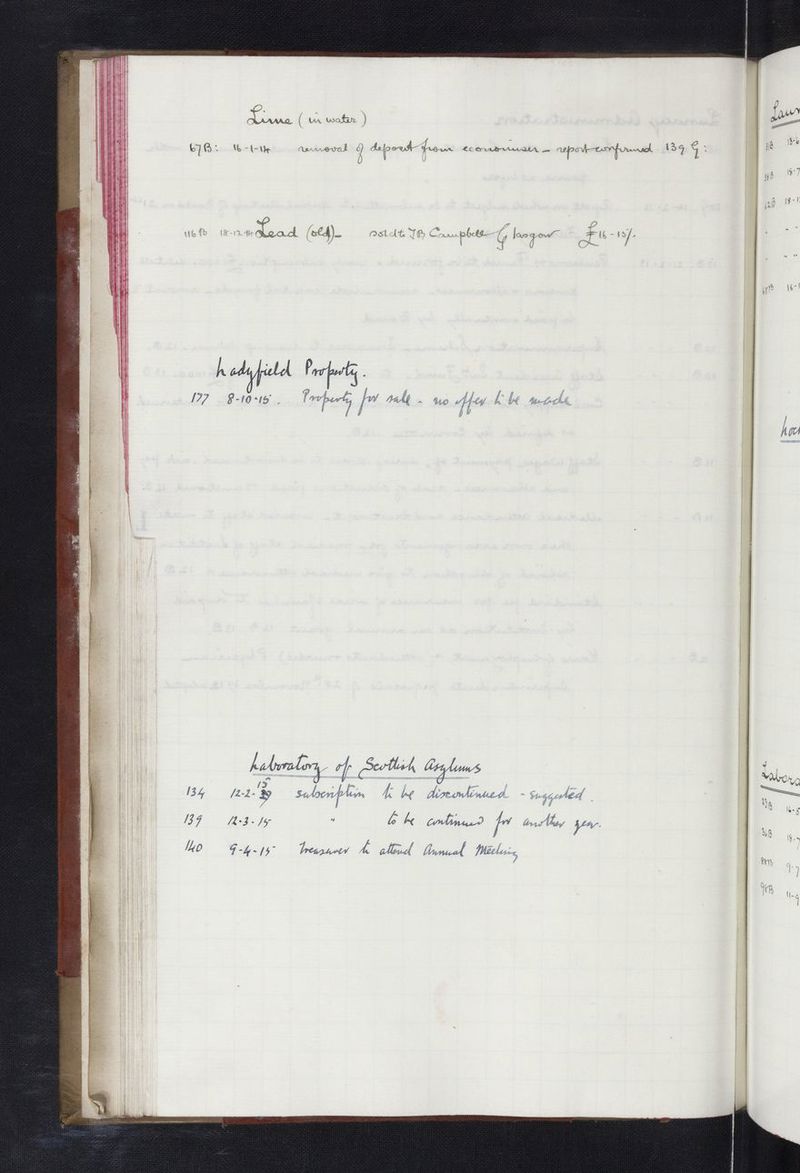 Lime (in water)
67B: 16-1-14 removal of deposit from economiser - report confirmed 139 G:
116 B 18-12-14 Lead (old) - sold to JB Campbell Glasgow £16-15/-
Ladyfield Property.
177 8-10-15. Property for sale - no offer to be made
Laboratory of Scottish Asylums
134 12-2-15 subscription to be discontinued - suggested.
139 12-3-15 " to be continued for another year.
140 9-4-15 Treasurer to attend Annual Meeting